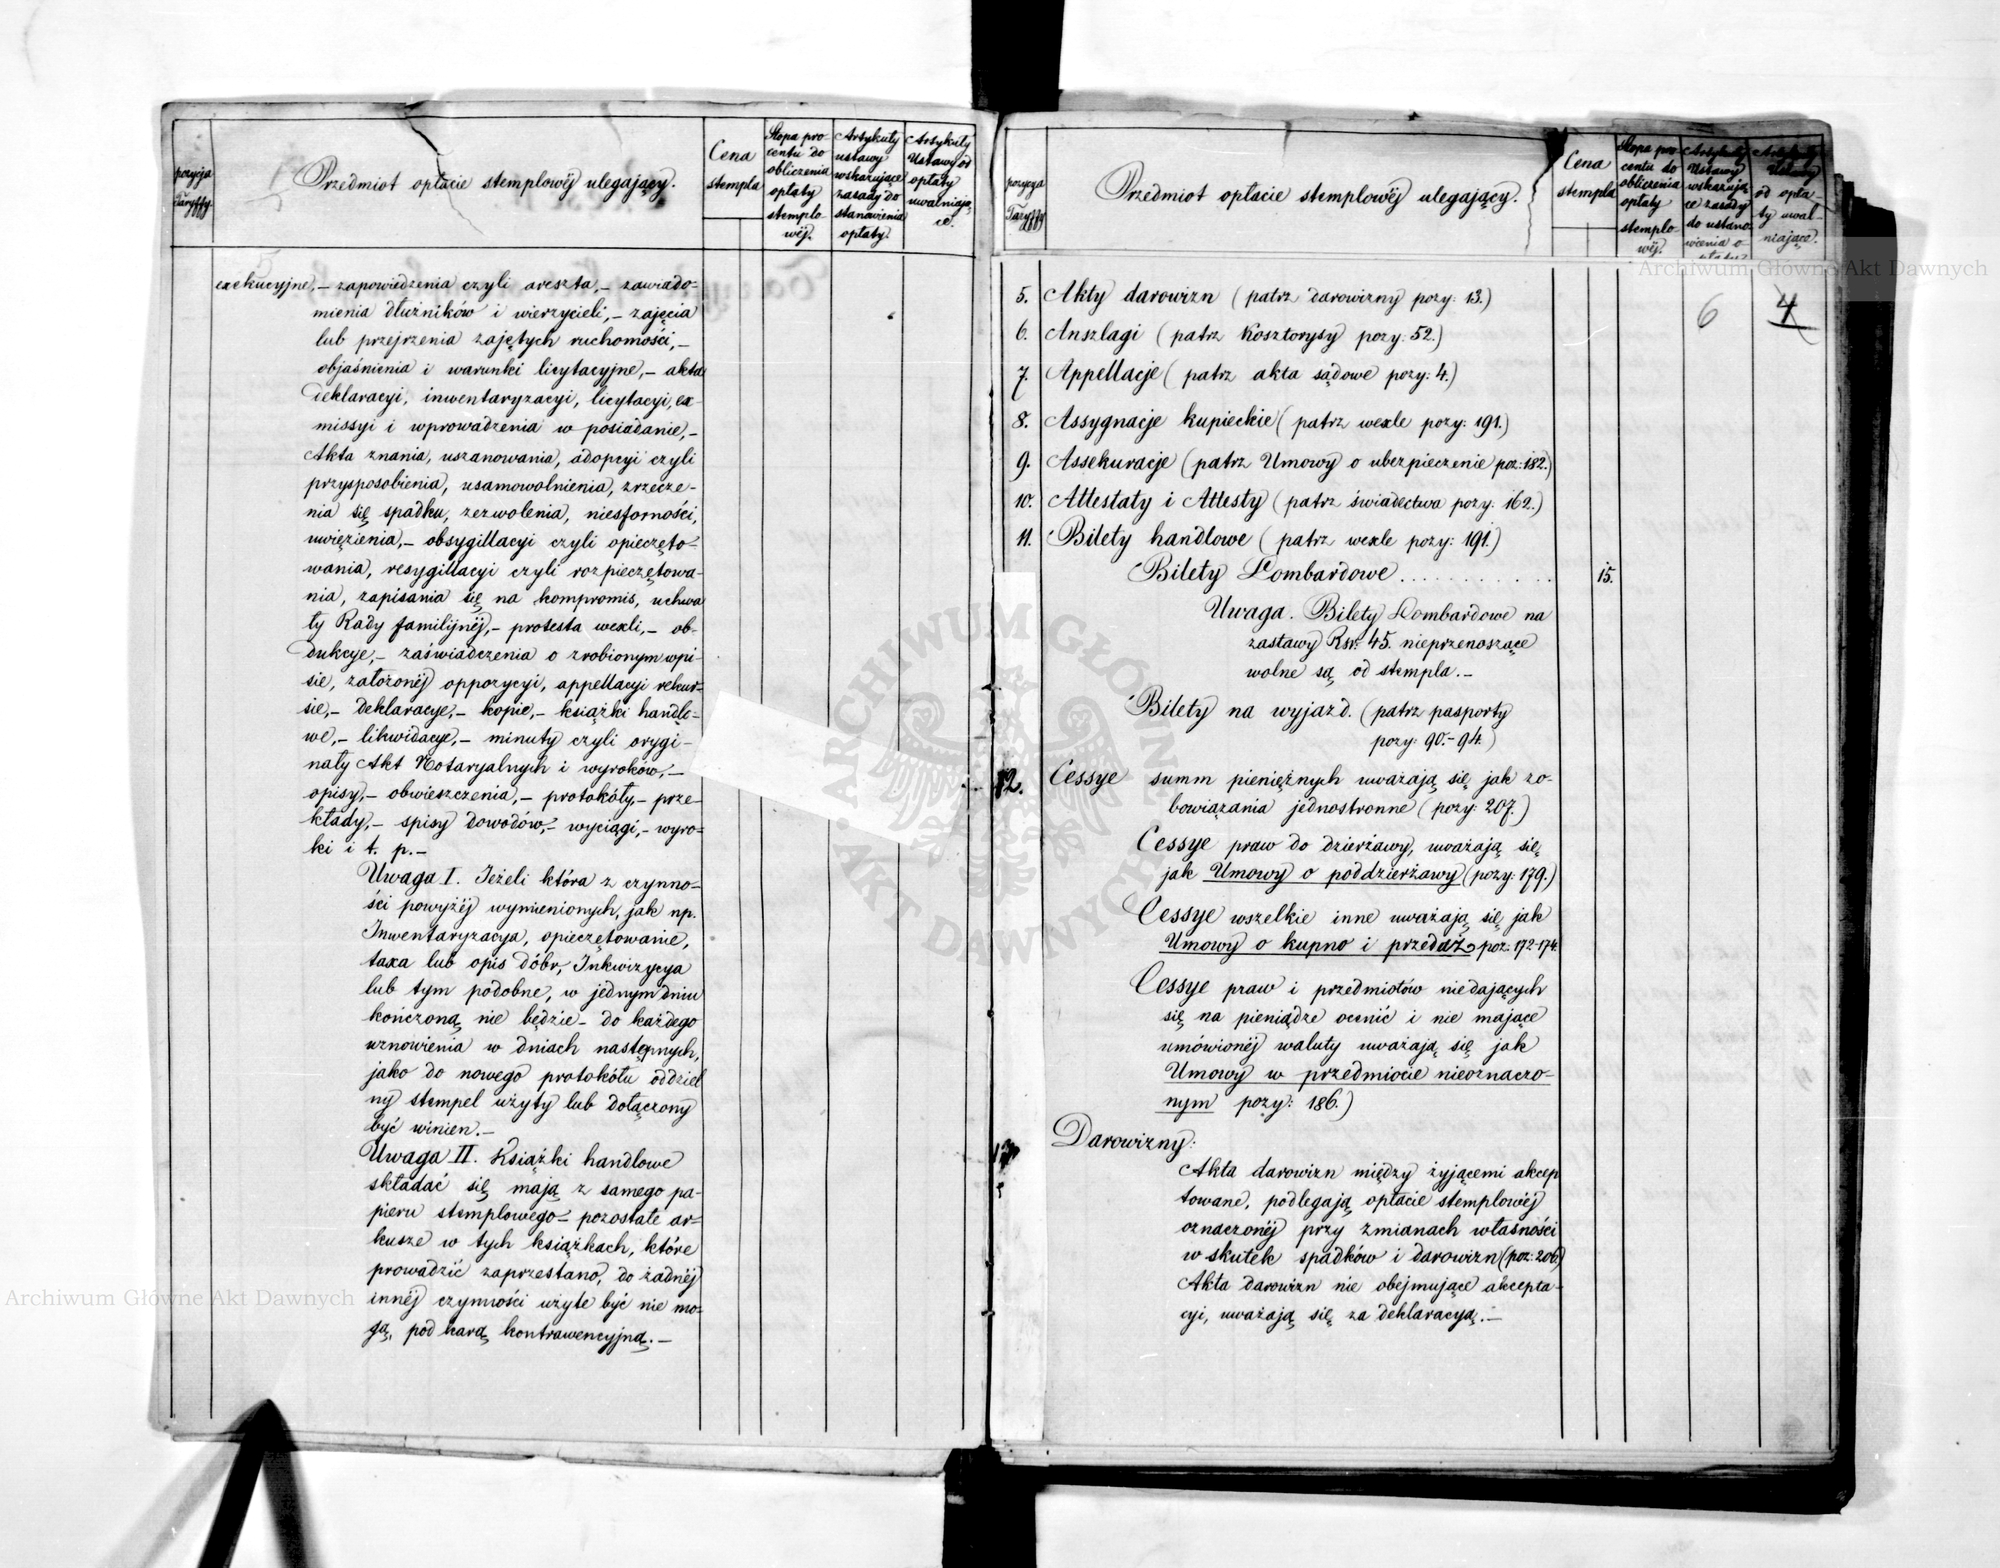 pozycja
Taryffy.
Przedmiot opłacie stemplowéj ulegający.
Cena
stempla
Stopa pro-
centu do
obliczenia
opłaty
stemplo-
wéj.
Artykuły
ustawy
wskazujące
zasady do
stanowienia
opłaty.
Artykuły
Ustawy od
opłaty
uwalniają-
ce.
exekucyjne,- zapowiedzenia czyli areszta,- zawiado-
mienia dłużników i wierzycieli,- zajęcia
lub przejrzenia zajętych ruchomości,-
objaśnienia i warunki licytacyjne,- akta
deklaracyi, inwentaryzacyi, licytacyi, ex-
missyi i wprowadzenia w posiadanie,-
Akta znania, uszanowania, adopcyi czyli
przysposobienia, usamowolnienia, zrzecze-
nia się spadku, zezwolenia, niesforności,
uwięzienia,- obsygillacyi czyli opieczęto-
wania, resygillacyi czyli rozpieczętowa-
nia, zapisania się na kompromis, uchwa
ły Rady familijnéj,- protesta wexli,- ob-
dukcye,- zaświadczenia o zrobionym wpi-
sie, założonéj oppozycyi, appellacyi rekur-
sie,- deklaracye,- kopie,- książki handlo-
we,- likwidacye,- minuty czyli orygi-
nały Akt Notaryalnych i wyroków,-
opisy,- obwieszczenia,- protokóły,- prze-
kłady,- spisy dowodów,- wyciągi,- wyro-
ki i t. p.-
Uwaga I. Jeżeli która z czynno-
ści powyżéj wymienionych, jak np.
Inwentaryzacya, opieczętowanie,
taxa lub opis dóbr, Inkwizycya
lub tym podobne, w jednym dniu
kończoną nie będzie- do każdego
wznowienia w dniach następnych,
jako do nowego protokółu oddziel
ny stempel użyty lub dołączony
być winien.-
Uwaga II. Książki handlowe
składać się mają z samego pa-
pieru stemplowego- pozostałe ar-
kusze w tych książkach, które
prowadzić zaprzestano, do żadnéj
innéj czynności użyte być nie mo-
gą, pod karą kontrawencyjną.-
pozycya
Taryffy
Przedmiot opłacie stemplowéj ulegający.
Cena
stempla
Stopa pro-
centu do
obliczenia
opłaty
stemplo-
wéj.
Artykuły
Ustawy
wskazują-
ce zasady
do ustano-
wienia o-
płaty
Artykuły
Ustawy
od opła-
ty uwal-
niające.
6 4
5. Akty darowizn (patrz darowizny pozy: 13.)
6. Anszlagi (patrz Kosztorysy pozy: 52.)
7. Appellacje (patrz akta sądowe pozy: 4.)
8. Assygnacje kupieckie (patrz wexle pozy: 191.)
9. Assekuracje (patrz Umowy o ubezpieczenie poz: 182.)
10. Attestaty i Attesty (patrz świadectwa pozy: 162.)
11. Bilety handlowe (patrz wexle pozy: 191.)
Bilety Lombardowe . . . . . . . . . . . 15.
Uwaga. Bilety Lombardowe na
zastawy Rsr. 45. nieprzenoszące
wolne są od stempla.-
Bilety na wyjazd. (patrz pasporty
pozy: 90.-94.)
12. Cessye summ pieniężnych uważają się jak zo-
bowiązania jednostronne (pozy: 207.)
Cessye praw do dzierżawy, uważają się
jak Umowy o poddzierżawy (pozy: 179.)
Cessye wszelkie inne uważają się jak
Umowy o kupno i przedaż poz: 172-174
Cessye praw i przedmiotów niedających
się na pieniądze ocenić i nie mające
umówionéj waluty uważają się jak
Umowy w przedmiocie nieoznaczo-
nym pozy: 186.)
13. Darowizny:
Akta darowizn między żyjącemi akcep
towane, podlegają opłacie stemplowéj
oznaczonéj przy zmianach własności
w skutek spadków i darowizn (poz: 206.)
Akta darowizn nie obejmujące akcepta-
cyi, uważają się za deklaracyą.-
Archiwum Główne Akt Dawnych
Archiwum Główne Akt Dawnych
ARCHIWUM GŁÓWNE AKT DAWNYCH